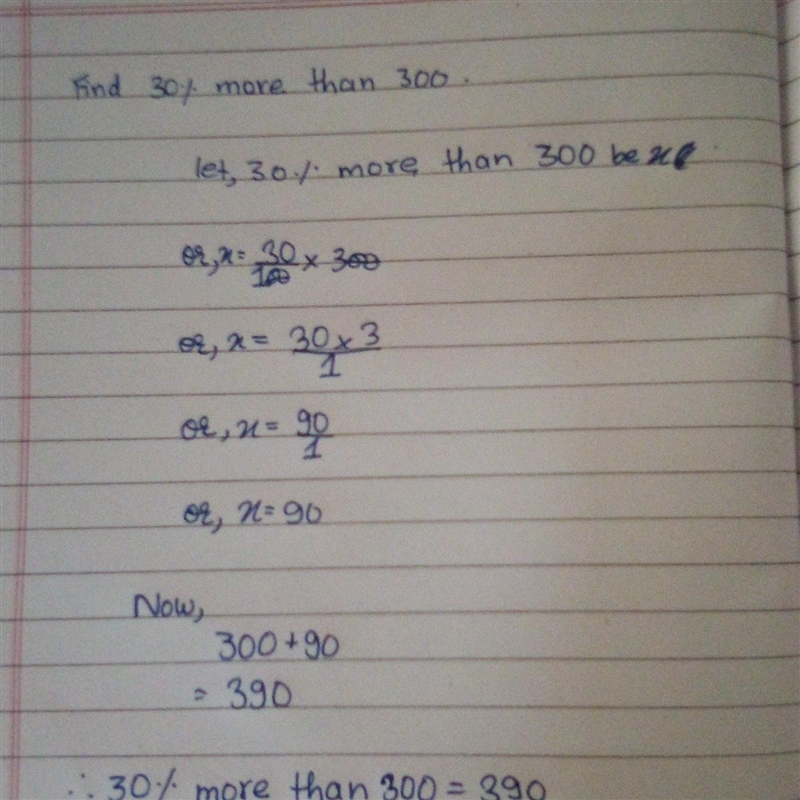 Find 30% more than 300.
let, 30% more than 300 be x
or, x = 30/100 × 300
or, x = 30 × 3/1
or, x = 90/1
or, x = 90
Now,
300 + 90
= 390
∴ 30% more than 300 = 390